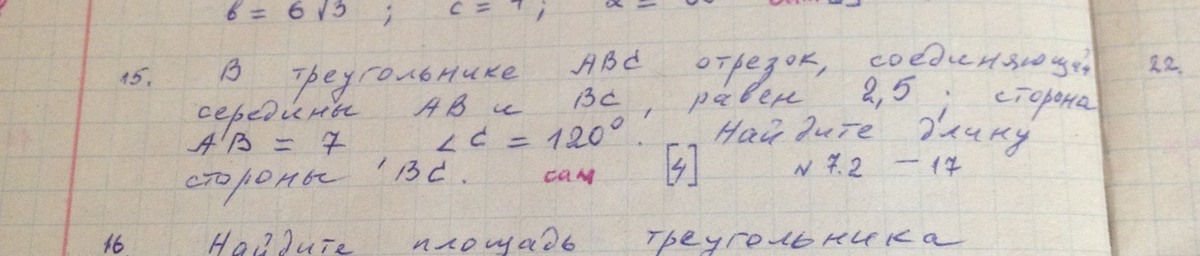 в = 6√3 ; c =
15. В треугольнике ABC отрезок, соединяющий 22.
середины AB и BC, равен 2,5 ; сторона
AB = 7 ∠C = 120°. Найдите длину
стороны BC. сам [4] N 7.2 - 17
16 Найдите площадь треугольника